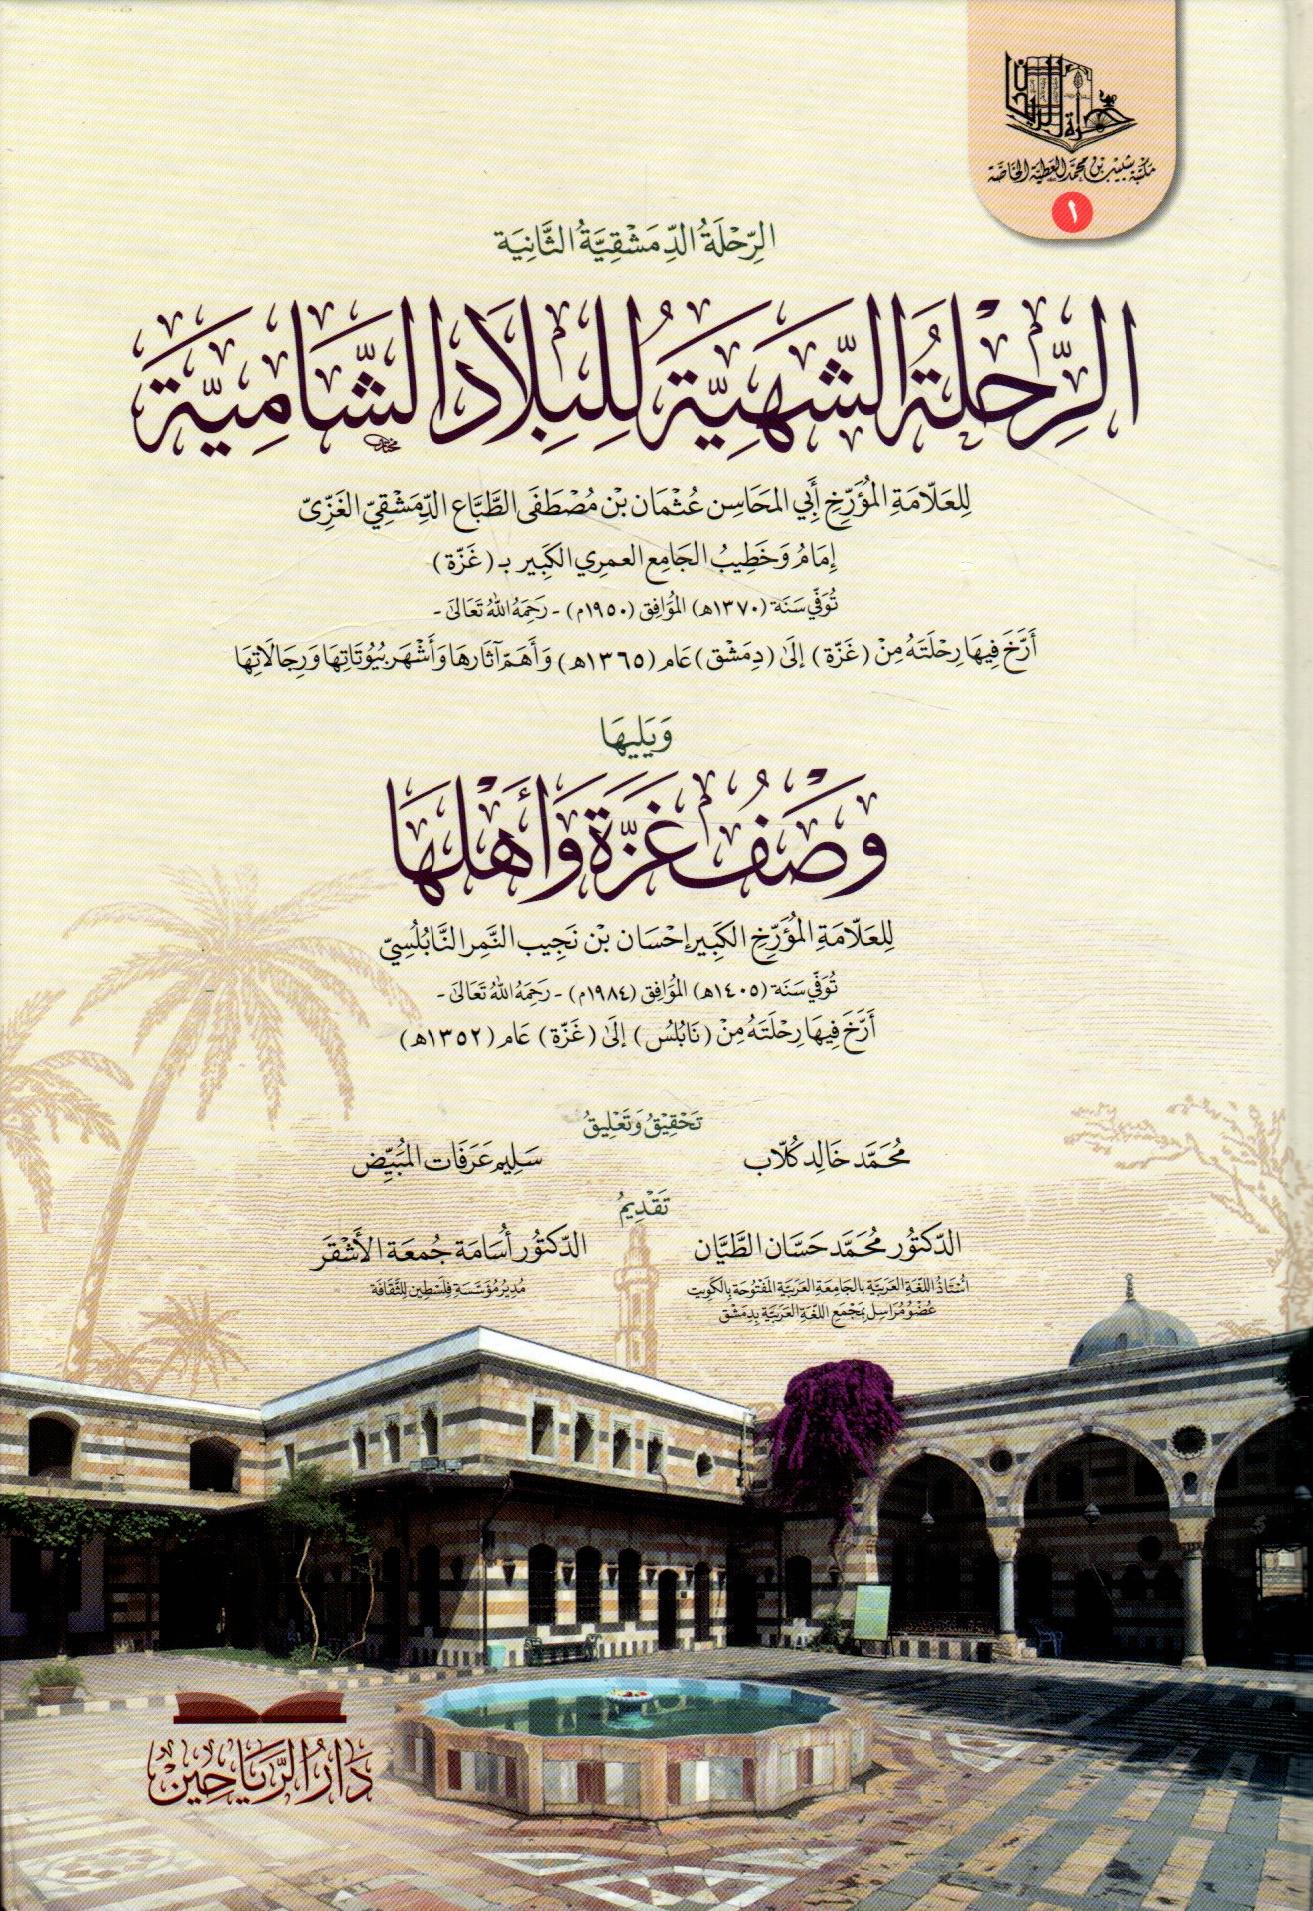 خزانة الريحان
مكتبة شبيب بن محمد العطية الخاصة
١
الرِّحْلَةُ الدِّمَشْقِيَّةُ الثَّانِيَة
الرِّحْلَةُ الشَّهِيَّةُ لِلبِلَادِ الشَّامِيَّة
لِلعَلَّامَةِ المُؤَرِّخِ أَبِي المَحَاسِن عُثْمَان بْن مُصْطَفَى الطَّبَّاع الدِّمَشْقِيّ الغَزِّيّ
إِمَامُ وَخَطِيبُ الجَامِعِ العمرِي الكَبِير بـ (غَزّة)
تُوفِّيَ سَنَة (١٣٧٠هـ) المُوَافِق (١٩٥٠م) - رَحِمَهُ اللهُ تَعَالَى -
أَرَّخَ فِيهَا رِحْلَتَهُ مِنْ (غَزّة) إِلَى (دِمَشْق) عَام (١٣٦٥هـ) وَأَهَمّ آثَارِهَا وَأَشْهَر بُيُوتَاتِهَا وَرِجَالَاتِهَا
وَيَلِيهَا
وَصْفُ غَزَّةَ وَأَهْلِهَا
لِلعَلَّامَةِ المُؤَرِّخِ الكَبِير إِحْسَان بْن نَجِيب النَّمِر النَّابُلُسِيّ
تُوفِّيَ سَنَة (١٤٠٥هـ) المُوَافِق (١٩٨٤م) - رَحِمَهُ اللهُ تَعَالَى -
أَرَّخَ فِيهَا رِحْلَتَهُ مِنْ (نَابُلُس) إِلَى (غَزّة) عَام (١٣٥٢هـ)
تَحْقِيقُ وَتَعْلِيقُ
مُحَمَّد خَالِد كُلَّاب
سَلِيم عَرَفَات المُبَيِّض
تَقْدِيمُ
الدّكتُور مُحَمَّد حَسَّان الطَّيَّان
الدّكتُور أُسَامَة جُمعَة الأَشْقَر
أُسْتَاذُ اللّغَةِ العَرَبيَّةِ بالجَامِعَةِ العَرَبيَّةِ المَفْتُوحَةِ بِالكُوَيت
مُدِيرُ مُؤَسَّسَةِ فِلَسْطِين لِلثَّقَافَة
عُضْوُ مُرَاسِل بمَجْمَعِ اللّغَةِ العَرَبيَّةِ بِدِمَشْق
دَارُ الرَّيَاحِين